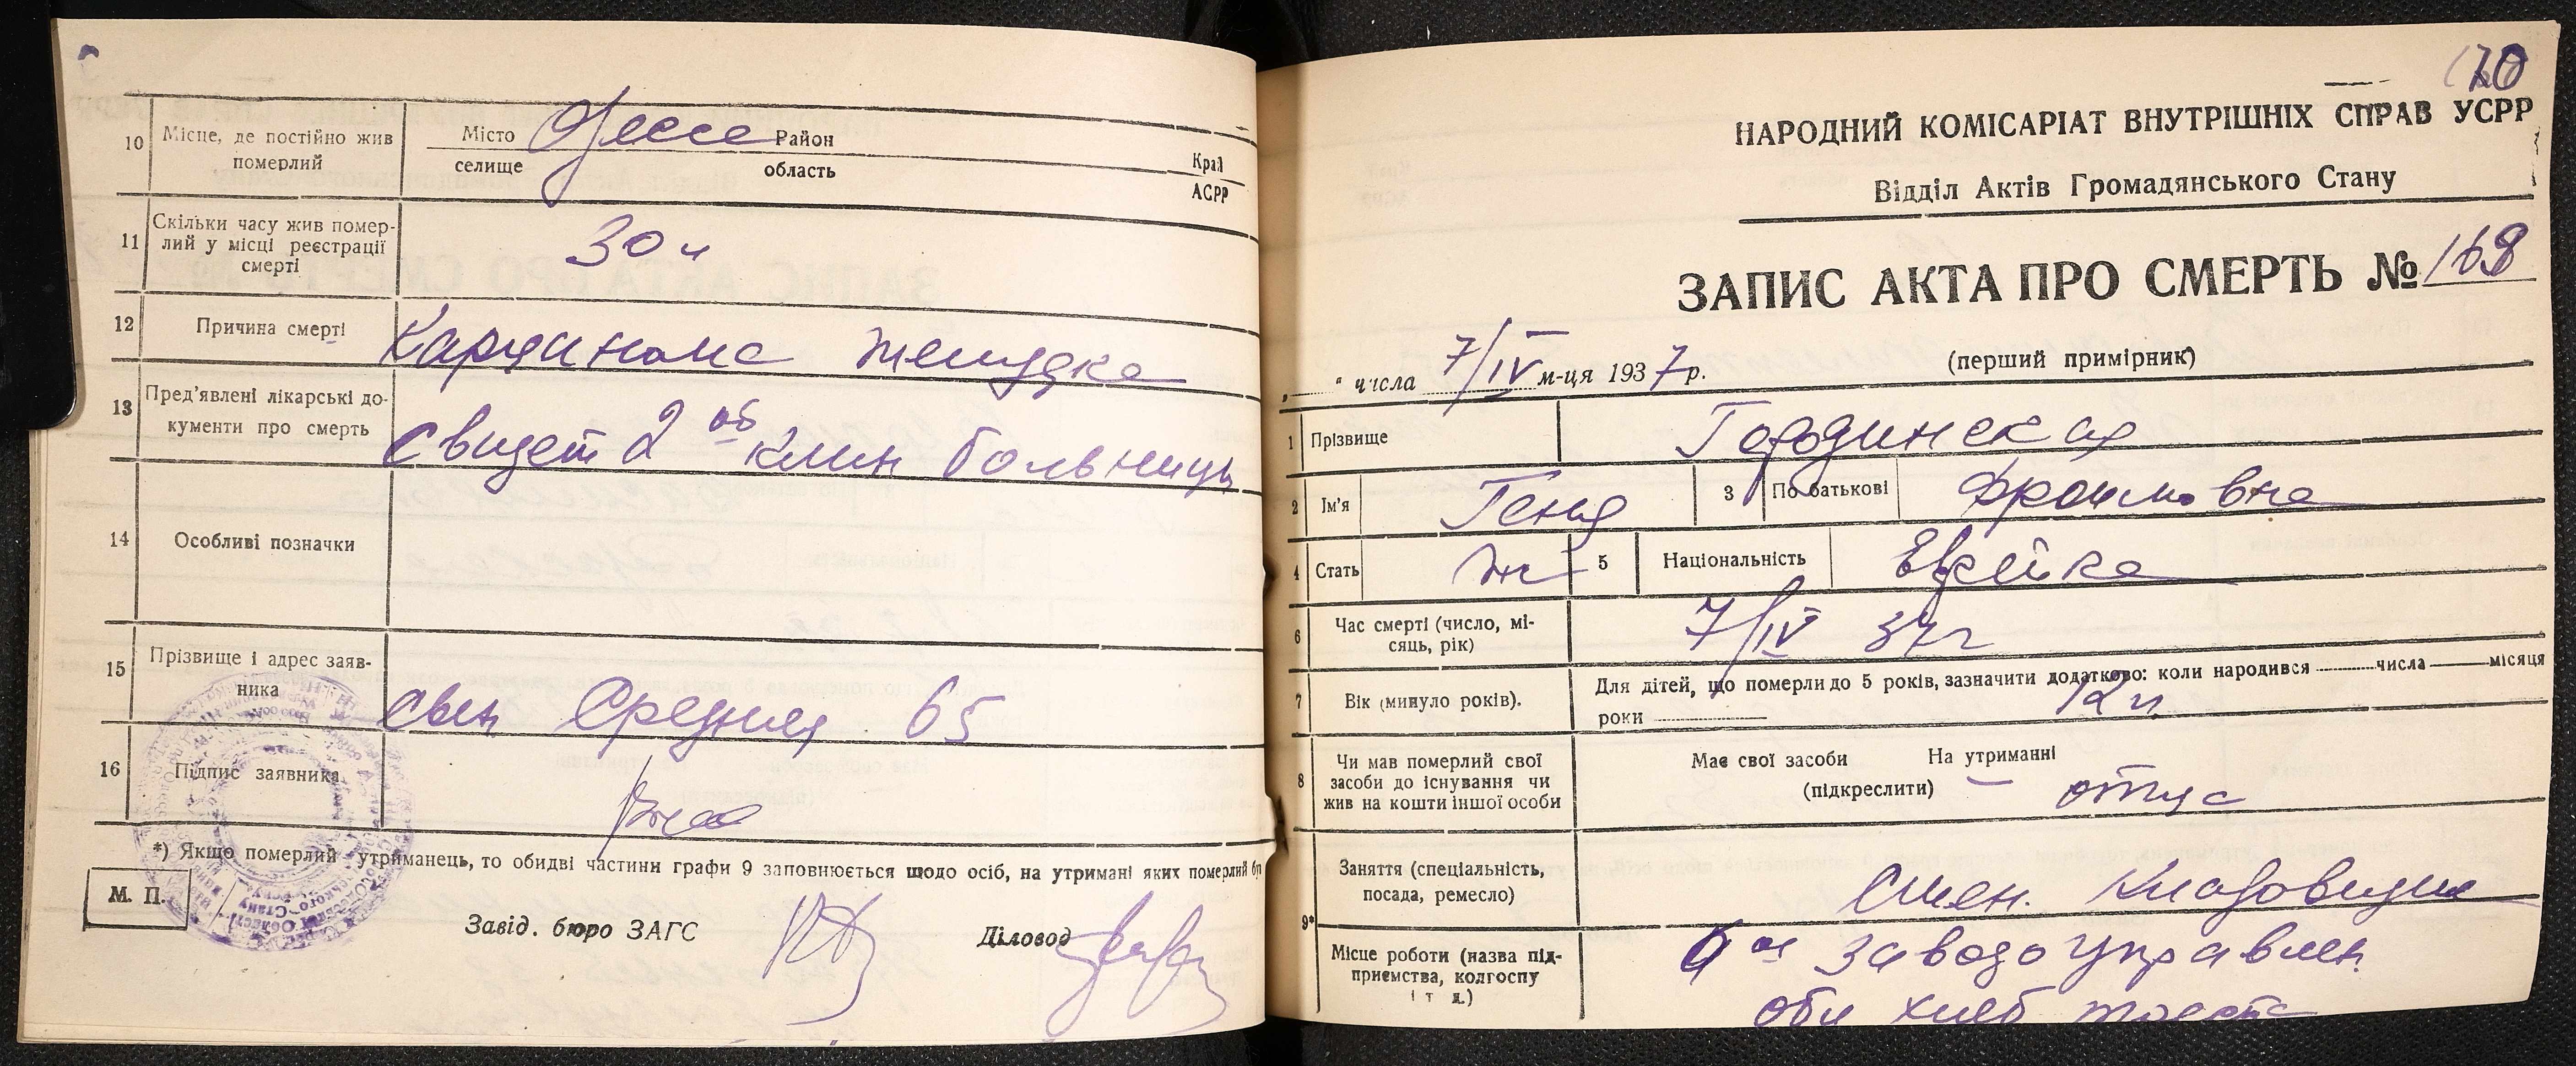 10
Місце, де постійно жив
померлий
Місто Одесса Район
селище область
Край
АСРР
11
Скільки часу жив помер-
лий у місці реєстрації
смерті
30 л
12
Причина смерті
Карцинома желудка
13
Пред'явлені лікарські до-
кументи про смерть
Свидет 2 об клин больницы
14
Особливі позначки
15
Прізвище і адрес заяв-
ника
Сын Средняя 65
16
Підпис заявника
*) Якщо померлий утриманець, то обидві частини графи 9 заповнюється щодо осіб, на утримані яких померлий бу
М. П.
Завід. бюро ЗАГС
Діловод
НАРОДНИЙ КОМІСАРІАТ ВНУТРІШНІХ СПРАВ УСРР
Відділ Актів Громадянського Стану
ЗАПИС АКТА ПРО СМЕРТЬ № 168
(перший примірник)
" числа 7/IV м-ця 1937 р.
1 Прізвище Городинская
2 Ім'я Геня 3 По батькові Фроимовна
4 Стать ж 5 Національність Еврейка
6
Час смерті (число, мі-
сяць, рік)
7/IV 37 г
7 Вік (минуло років).
Для дітей, що померли до 5 років, зазначити додатково: коли народився числа місяця
роки
72 л
8
Чи мав померлий свої
засоби до існування чи
жив на кошти іншої особи
Має свої засоби На утриманні
(підкреслити)
9*
Заняття (спеціальність,
посада, ремесло)
Смен. Кладовщик
Місце роботи (назва під-
приємства, колгоспу
і т д.)
заводоуправлен
обл хлеб треста